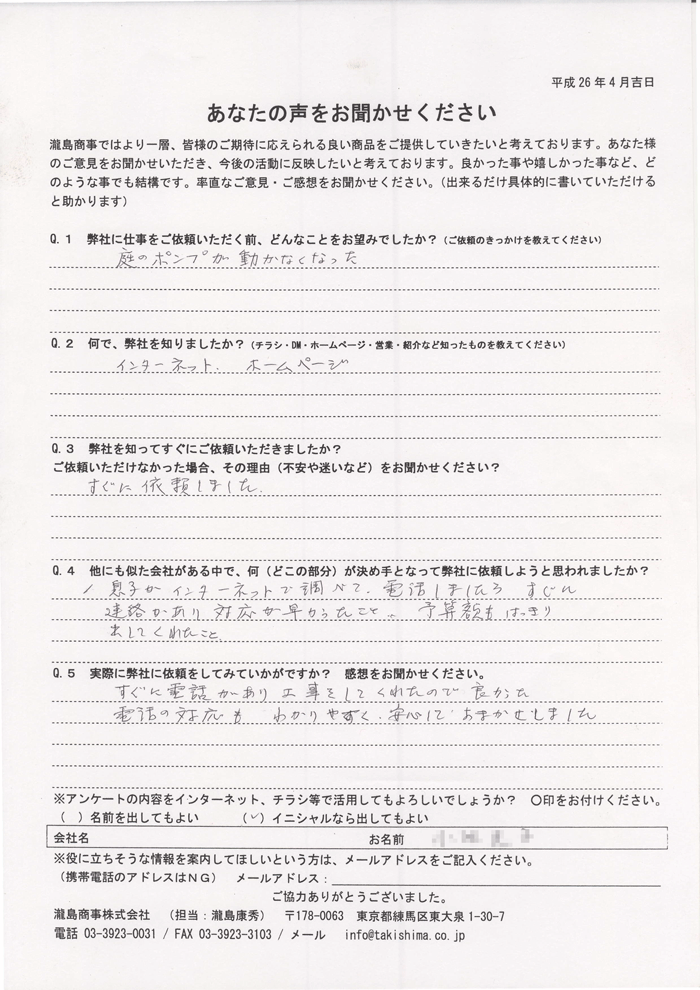 平成26年4月吉日
あなたの声をお聞かせください
瀧島商事ではより一層、皆様のご期待に応えられる良い商品をご提供していきたいと考えております。あなた様
のご意見をお聞かせいただき、今後の活動に反映したいと考えております。良かった事や嬉しかった事など、ど
のような事でも結構です。率直なご意見・ご感想をお聞かせください。(出来るだけ具体的に書いていただける
と助かります)
Q.1 弊社に仕事をご依頼いただく前、どんなことをお望みでしたか?(ご依頼のきっかけを教えてください)
庭のポンプが動かなくなった
Q.2 何で、弊社を知りましたか?(チラシ・DM・ホームページ・営業・紹介など知ったものを教えてください)
インターネット. ホームページ
Q.3 弊社を知ってすぐにご依頼いただきましたか?
ご依頼いただけなかった場合、その理由(不安や迷いなど)をお聞かせください?
すぐに依頼しました.
Q.4 他にも似た会社がある中で、何(どこの部分)が決め手となって弊社に依頼しようと思われましたか?
息子がインターネットで調べて、電話しましたら すぐに
連絡があり 対応が早かったこと。 予算額も はっきり
出してくれたこと
Q.5 実際に弊社に依頼をしてみていかがですか? 感想をお聞かせください。
すぐに電話があり 工事をしてくれたので 良かった
電話の対応も わかりやすく、安心して おまかせしました
※アンケートの内容をインターネット、チラシ等で活用してもよろしいでしょうか? ○印をお付けください。
( )名前を出してもよい (✓)イニシャルなら出してもよい
会社名 お名前
※役に立ちそうな情報を案内してほしいという方は、メールアドレスをご記入ください。
(携帯電話のアドレスはNG) メールアドレス:
ご協力ありがとうございました。
瀧島商事株式会社 (担当:瀧島康秀) 〒178-0063 東京都練馬区東大泉1-30-7
電話 03-3923-0031 / FAX 03-3923-3103 / メール info@takishima.co.jp